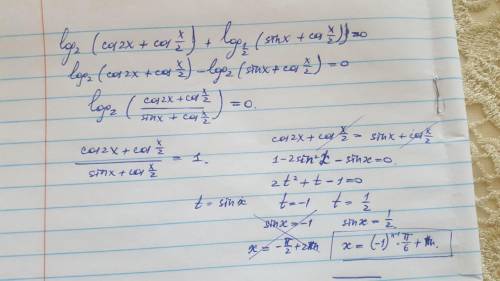 log₂(cos2x + cos x/2) + log_{1/2}(sinx + cos x/2)) = 0
log₂(cos2x + cos x/2) - log₂(sinx + cos x/2) = 0
log₂((cos2x + cos x/2)/(sinx + cos x/2)) = 0.
(cos2x + cos x/2)/(sinx + cos x/2) = 1.
cos2x + cos x/2 = sinx + cos x/2
1 - 2sin²x - sinx = 0.
2t² + t - 1 = 0
t = sinx t = -1 t = 1/2
sinx = -1 sinx = 1/2
x = -π/2 + 2πn x = (-1)ⁿ · π/6 + πn.